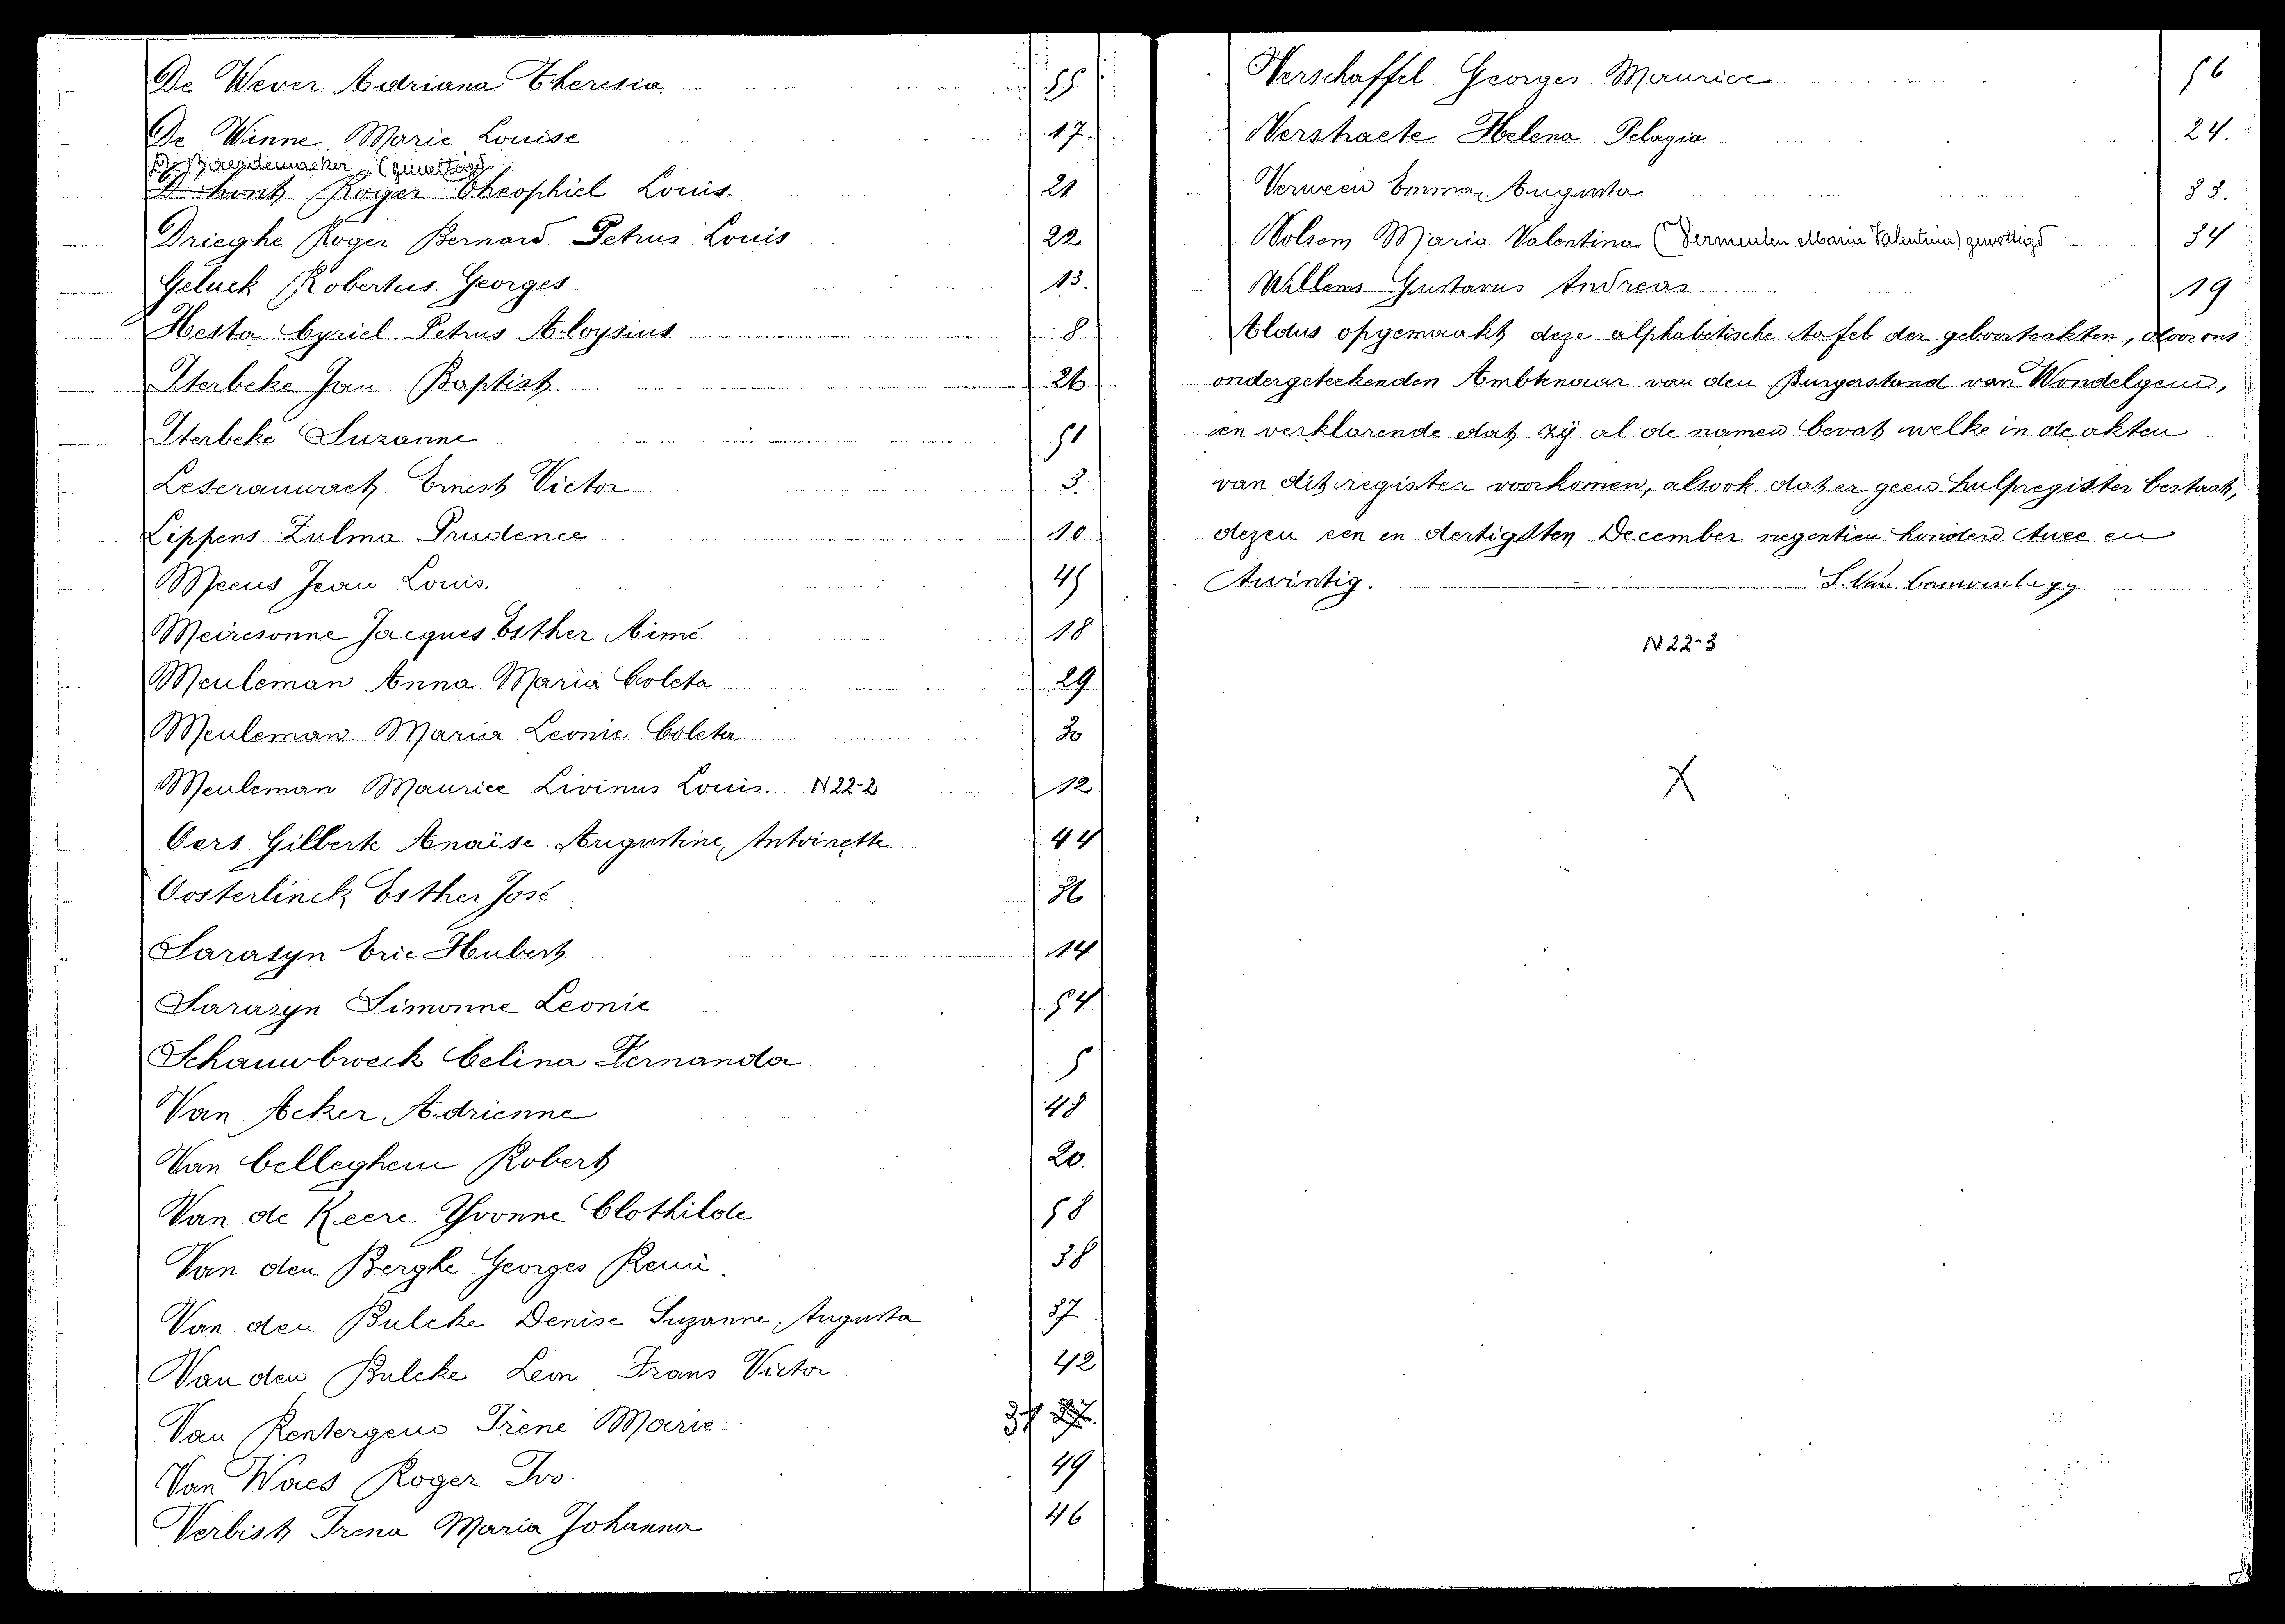 De Wever Adriana Theresia 55.
De Winne Marie Louise 17.
(gewettigd)
D'hont Roger Theophiel Louis. 21
Drieghe Roger Bernard Petrus Louis 22
Geluck Robertus Georges 13.
Hesta Cyriel Petrus Aloysius 8
Iterbeke Jan Baptist 26
Iterbeke Suzanne 51
Leseranwaet Ernest Victor 3.
Lippens Zulma Prudence 10
Meeus Jean Louis. 45
Meiresonne Jacques Esther Aimé 18
Meuleman Anna Maria Coleta 29
Meuleman Maria Leonie Coleta 30
Meuleman Maurice Livinus Louis. N22-2 12
Oers Gilberte Anaïse Augustine, Antoinette 44
Oosterlinck Esther José 36
Sarasyn Eric Hubert 14
Sarazyn Simonne Leonie 54
Schauwbroeck Celina Fernanda 5
Van Acker Adrienne 48
Van Celleghem Robert 20
Van de Keere Yvonne Clothilde 58
Van den Berghe Georges Remi. 38
Van den Bulcke Denise Suzanne, Augusta 37
Van den Bulcke Leon Frans Victor 42
Van Rentergem Irene Marie
Van Waes Roger Ivo. 49
Verbist Irena Maria Johanna 46
Verschaffel Georges Maurice 56
Verstraete Helena Pelagia 24.
Verween Emma, Augusta 33.
Volsem Maria Valentina (Vermeulen Maria Valentina) gewettigd 34
Willems Gustavus Andreas 19
Aldus opgemaakt deze alphabetische tafel der geboorteakten, door ons
ondergeteekenden Ambtenaar van den Burgerstand van Wondelgem,
en verklarende dat zij al de namen bevat welke in de akten
van dit register voorkomen, alsook dat er geen hulpregister bestaat,
dezen een en dertigsten December negentien honderd twee en
twintig.
N22-3
X